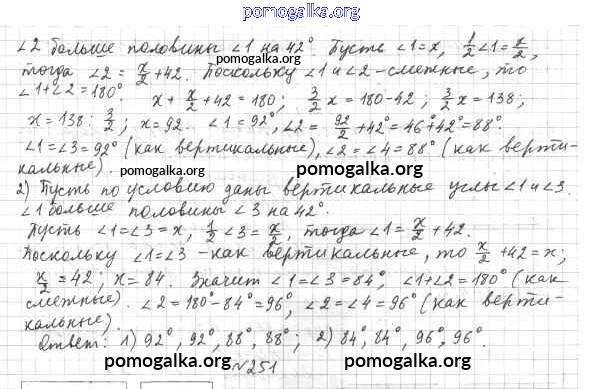 pomogalka.org
∠2 больше половины ∠1 на 42°. Пусть ∠1=x, 1/2∠1=x/2,
тогда ∠2 = x/2+42. Поскольку ∠1 и ∠2-смежные, то
∠1+∠2=180°. x + x/2 +42 = 180, 3/2 x = 180-42; 3/2 x=138;
pomogalka.org
x = 138: 3/2; x=92. ∠1=92°, ∠2 = 92/2+42°=46°+42°=88°.
∠1=∠3=92° (как вертикальные), ∠2=∠4=88° (как верти-
кальные).
pomogalka.org pomogalka.org
2) Пусть по условию даны вертикальные углы ∠1 и ∠3.
∠1 больше половины ∠3 на 42°.
Пусть ∠1=∠3=x, 1/2∠3=x/2, тогда ∠1= x/2+42.
pomogalka.org
Поскольку ∠1=∠3 -как вертикальные, то x/2+42=x;
x/2=42; x=84. Значит ∠1=∠3=84°, ∠1+∠2=180° (как
смежные). ∠2=180°-84°=96°, ∠2=∠4=96° (как верти-
кальные). pomogalka.org
Ответ: 1) 92°, 92°, 88°, 88°; 2) 84°, 84°, 96°, 96°.
pomogalka.org №251 pomogalka.org